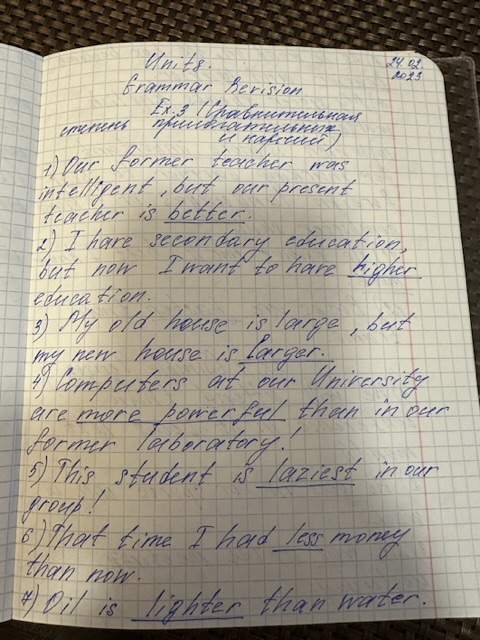 Unit 8.
24.02.
2023
Grammar Revision
Ex.3 (Сравнительная
степень прилагательных
и наречий)
1) Our former teacher was
intelligent, but our present
teacher is better.
2) I have secondary education,
but now I want to have higher
education.
3) My old house is large, but
my new house is larger.
4) Computers at our University
are more powerful than in our
former laboratory!
5) This student is laziest in our
group!
6) That time I had less money
than now.
7) Oil is lighter than water.